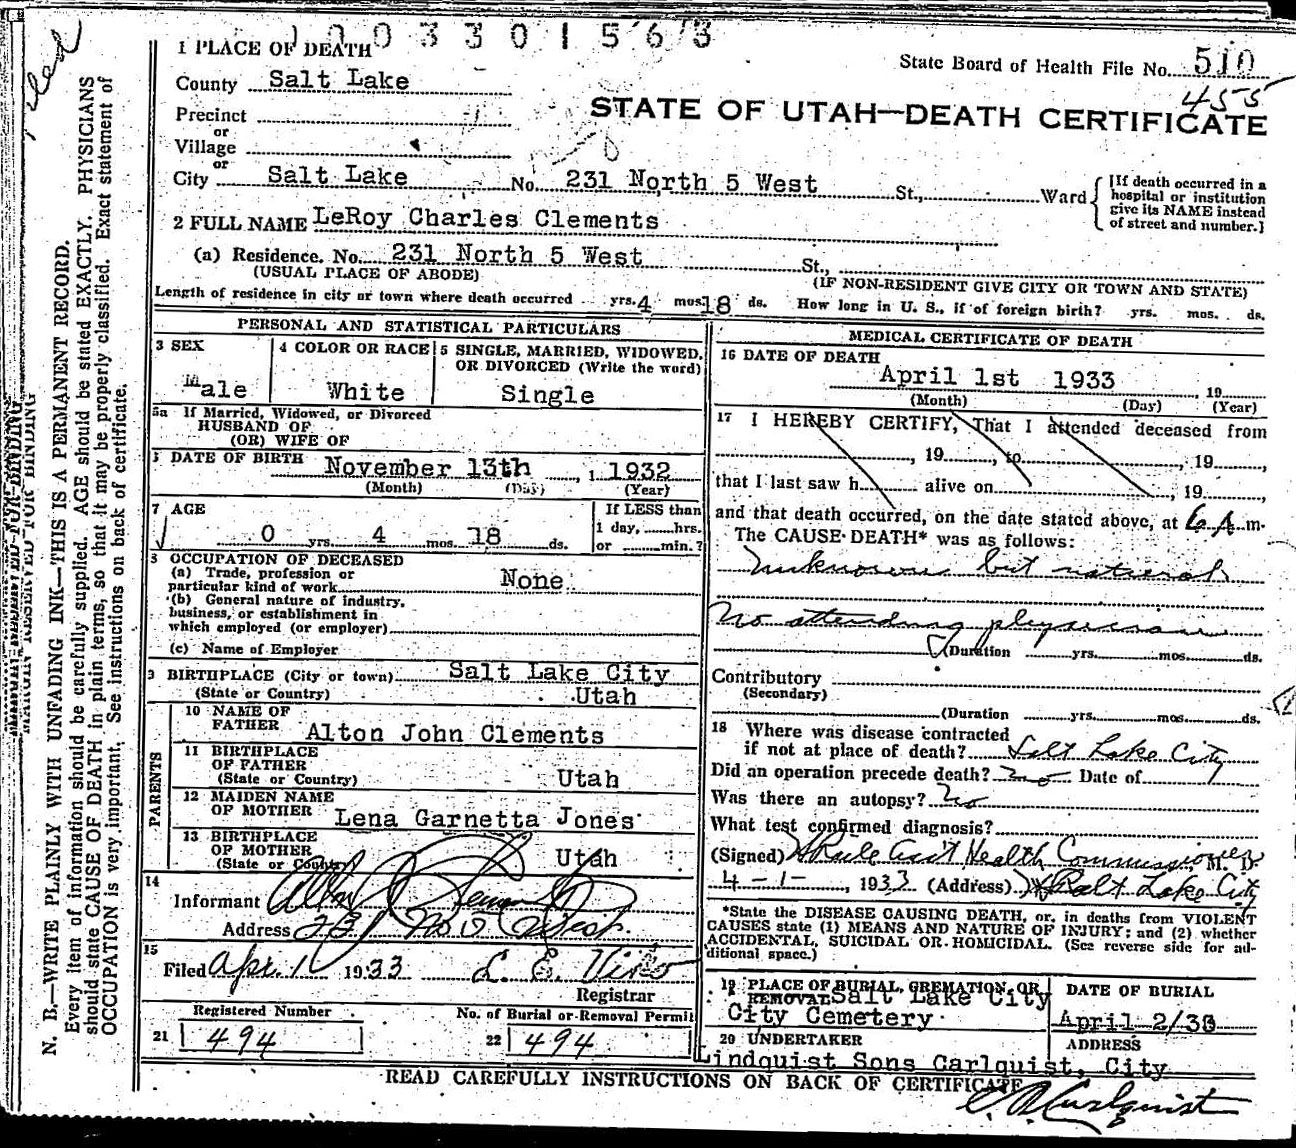 1003301563
1 PLACE OF DEATH
State Board of Health File No. 510
455
County Salt Lake
STATE OF UTAH—DEATH CERTIFICATE
Precinct
or
Village
or
City Salt Lake No. 231 North 5 West St., Ward
[If death occurred in a hospital or institution give its NAME instead of street and number.]
2 FULL NAME LeRoy Charles Clements
(a) Residence. No. 231 North 5 West St.,
(USUAL PLACE OF ABODE) (IF NON-RESIDENT GIVE CITY OR TOWN AND STATE)
Length of residence in city or town where death occurred yrs. 4 mos. 18 ds. How long in U. S., if of foreign birth? yrs. mos. ds.
PERSONAL AND STATISTICAL PARTICULARS
3 SEX
Male
4 COLOR OR RACE
White
5 SINGLE, MARRIED, WIDOWED,
OR DIVORCED (Write the word)
Single
5a If Married, Widowed, or Divorced
HUSBAND OF
(OR) WIFE OF
DATE OF BIRTH November 13th, 1 1932
(Month) (Day) (Year)
7 AGE
0 yrs. 4 mos. 18 ds.
If LESS than
1 day, hrs.
or min.?
8 OCCUPATION OF DECEASED
(a) Trade, profession or
particular kind of work None
(b) General nature of industry,
business, or establishment in
which employed (or employer)
(c) Name of Employer
9 BIRTHPLACE (City or town) Salt Lake City
(State or Country) Utah
PARENTS
10 NAME OF
FATHER Alton John Clements
11 BIRTHPLACE
OF FATHER
(State or Country) Utah
12 MAIDEN NAME
OF MOTHER Lena Garnetta Jones
13 BIRTHPLACE
OF MOTHER
(State or Country) Utah
14
Informant
Address 231 No 5 West.
15
Filed Apr. 1 1933
Registrar
Registered Number
21 494
No. of Burial or Removal Permit
22 494
MEDICAL CERTIFICATE OF DEATH
16 DATE OF DEATH
April 1st 1933, 19
(Month) (Day) (Year)
17 I HEREBY CERTIFY, That I attended deceased from
, 19, to, 19,
that I last saw h alive on, 19,
and that death occurred, on the date stated above, at 6 A m.
The CAUSE DEATH* was as follows:
Unknown but natural
No attending physician
(Duration yrs. mos. ds.
Contributory
(Secondary)
(Duration yrs. mos. ds.
18 Where was disease contracted
if not at place of death? Salt Lake City
Did an operation precede death? no Date of
Was there an autopsy? No
What test confirmed diagnosis?
(Signed) Health Commissioner M. D.
4-1-, 1933 (Address) Salt Lake City
*State the DISEASE CAUSING DEATH, or, in deaths from VIOLENT
CAUSES state (1) MEANS AND NATURE OF INJURY; and (2) whether
ACCIDENTAL, SUICIDAL OR HOMICIDAL. (See reverse side for ad-
ditional space.)
19 PLACE OF BURIAL, CREMATION, OR
REMOVAL Salt Lake City
City Cemetery
DATE OF BURIAL
April 2/33
20 UNDERTAKER
ADDRESS
Lindquist Sons Carlquist, City
READ CAREFULLY INSTRUCTIONS ON BACK OF CERTIFICATE
MARGIN RESERVED FOR BINDING
N. B.—WRITE PLAINLY WITH UNFADING INK—THIS IS A PERMANENT RECORD.
Every item of information should be carefully supplied. AGE should be stated EXACTLY. PHYSICIANS
should state CAUSE OF DEATH in plain terms, so that it may be properly classified. Exact statement of
OCCUPATION is very important. See instructions on back of certificate.